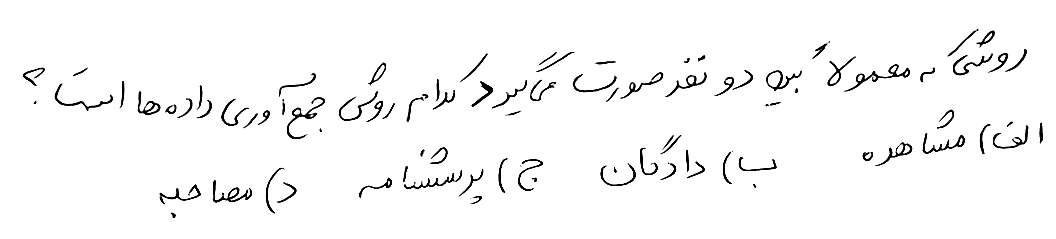 روشی که معمولاً بین دو نفر صورت می‌گیرد کدام روش جمع‌آوری داده‌ها است؟
الف) مشاهده ب) دادگان ج) پرسشنامه د) مصاحبه